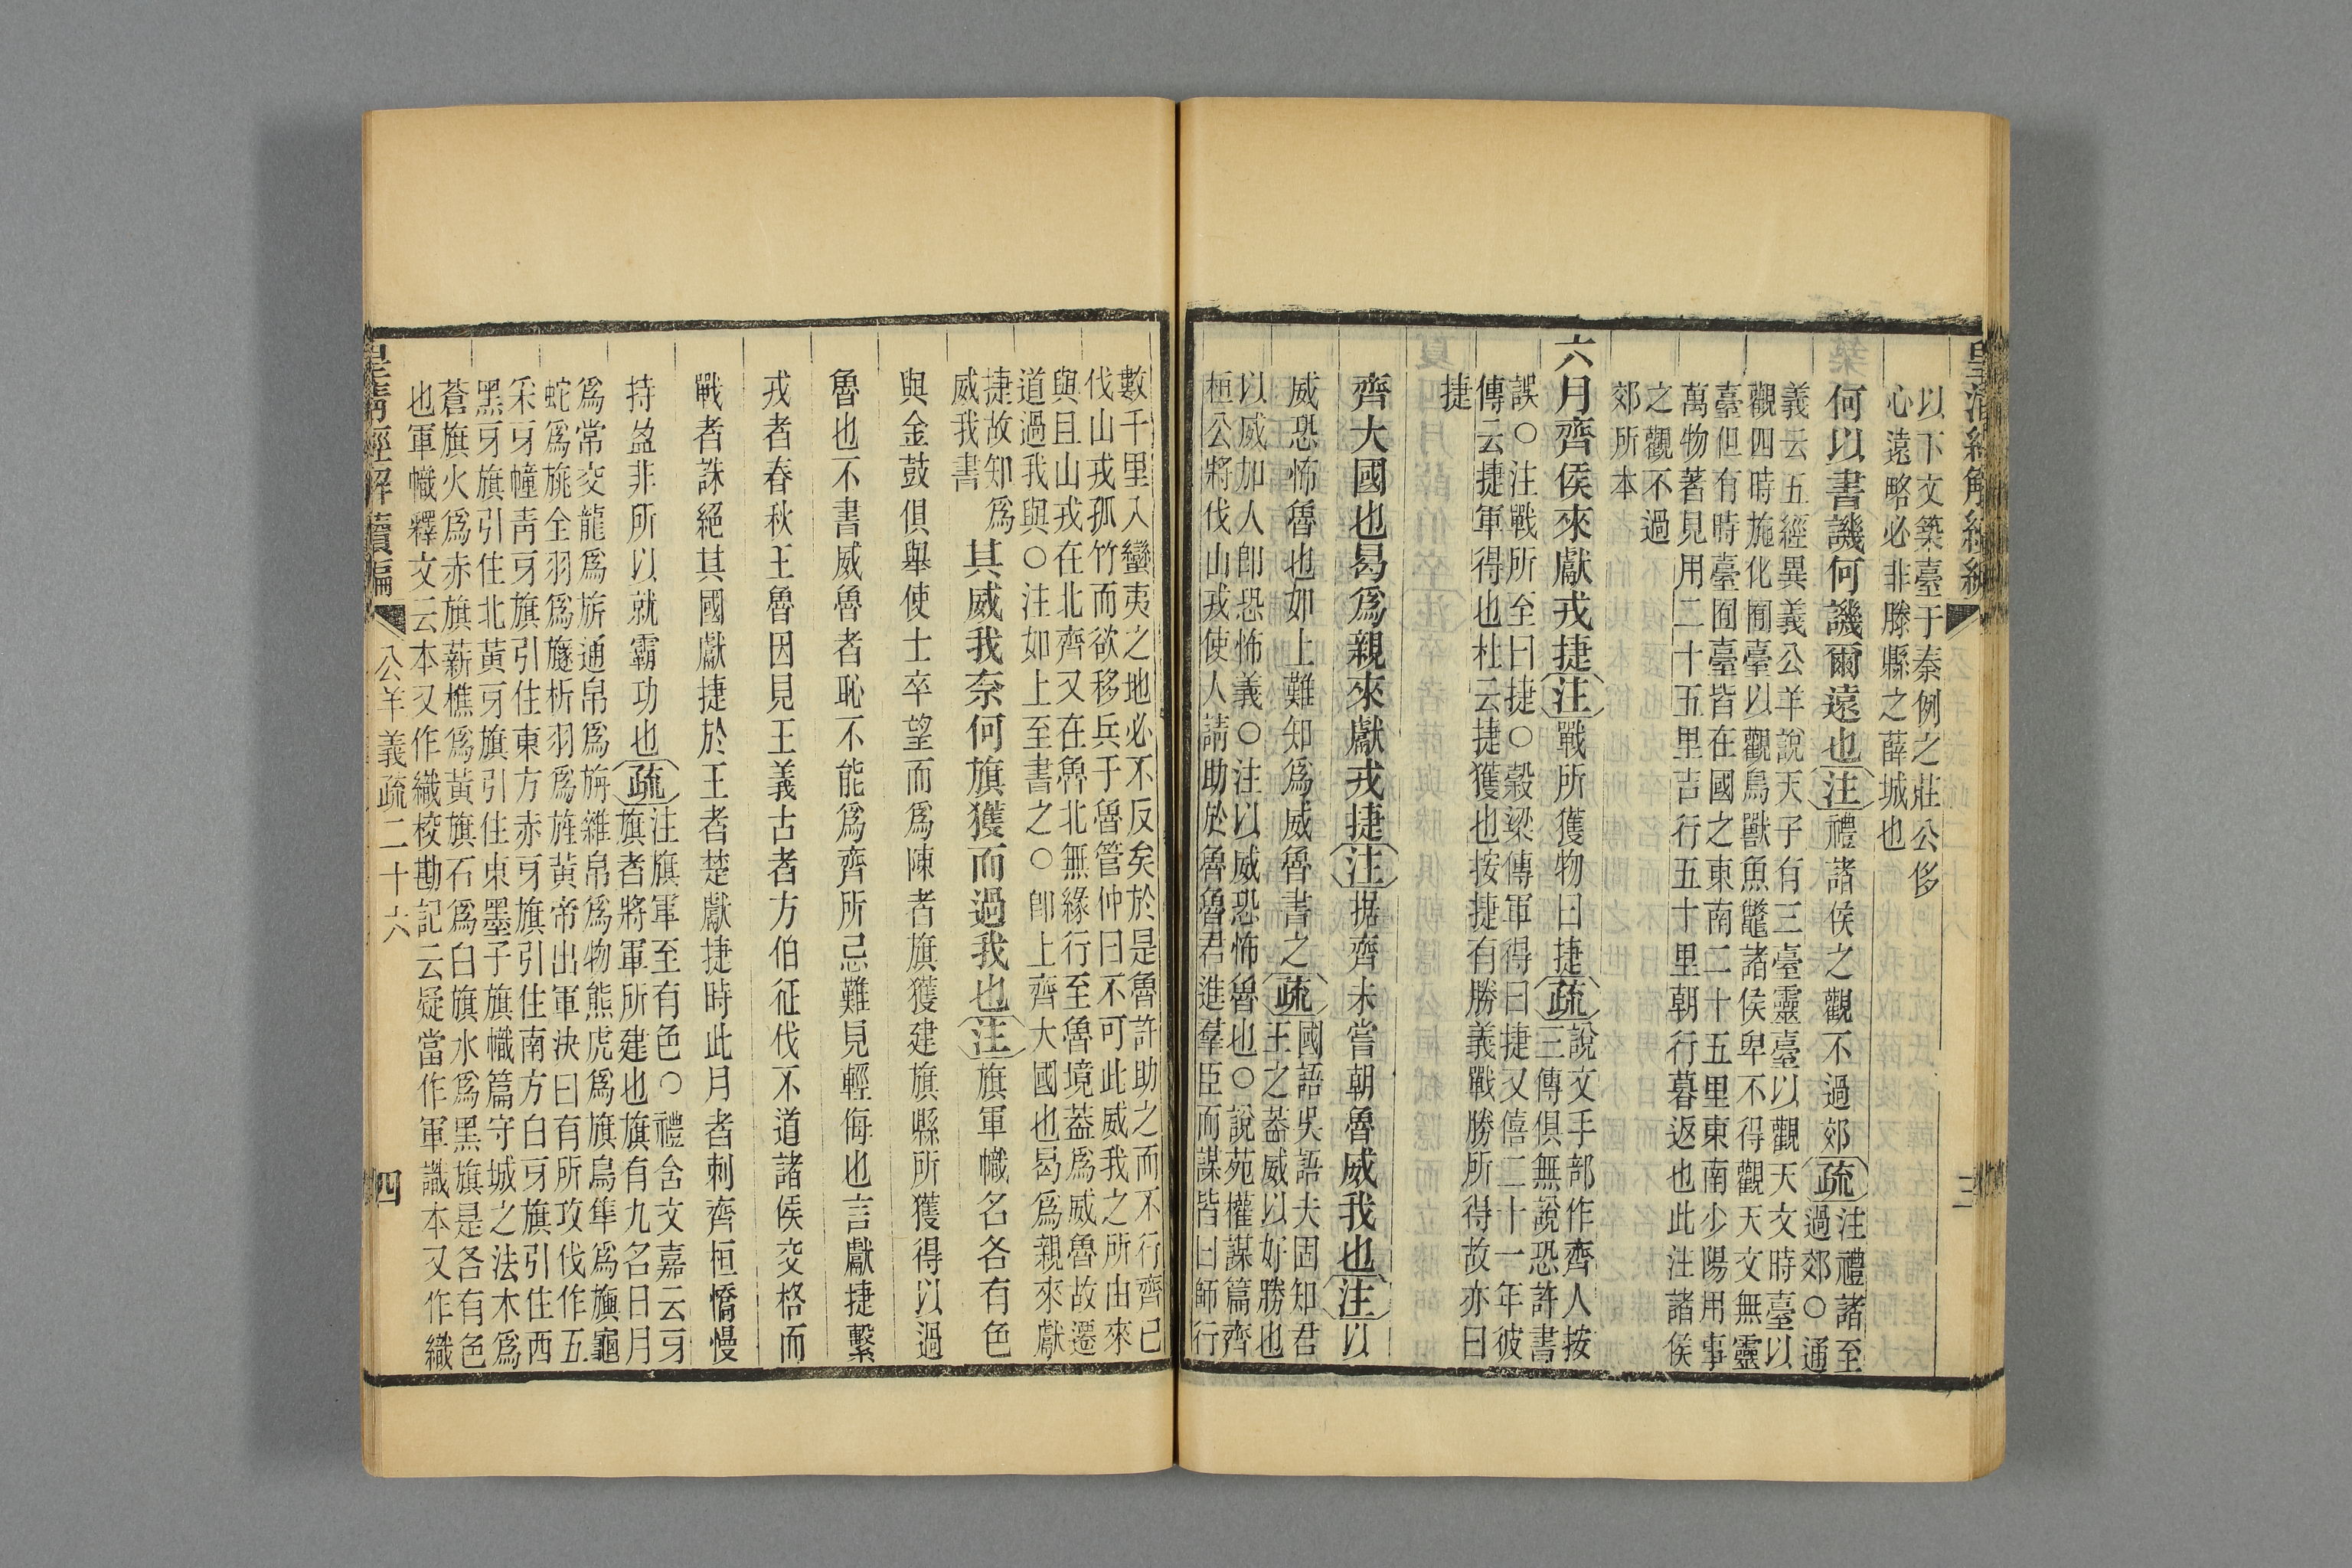 皇淸經解續編
三
以下文築臺于秦例之莊公侈
心遠略必非滕縣之薛城也
何以書譏何譏爾遠也注禮諸侯之觀不過郊疏注禮諸至
過郊○通
義云五經異義公羊說天子有三臺靈臺以觀天文時臺以
觀四時施化囿臺以觀鳥獸魚鼈諸侯卑不得觀天文無靈
臺但有時臺囿臺皆在國之東南二十五里東南少陽用事
萬物著見用二十五里吉行五十里朝行暮返也此注諸侯
之觀不過
郊所本
六月齊侯來獻戎捷注戰所獲物曰捷疏說文手部作齊人按
三傳俱無說恐許書
誤○注戰所至曰捷○穀梁傳軍得曰捷又僖二十一年彼
傳云捷軍得也杜云捷獲也按捷有勝義戰勝所得故亦曰
捷
齊大國也曷爲親來獻戎捷注据齊未嘗朝魯威我也注以
威恐怖魯也如上難知爲威魯書之疏國語吳語夫固知君
王之蓋威以好勝也
以威加人卽恐怖義○注以威恐怖魯也○說苑權謀篇齊
桓公將伐山戎使人請助於魯魯君進羣臣而謀皆曰師行
數千里入蠻夷之地必不反矣於是魯許助之而不行齊已
伐山戎孤竹而欲移兵于魯管仲曰不可此威我之所由來
與且山戎在北齊又在魯北無緣行至魯境蓋爲威魯故遷
道過我與○注如上至書之○卽上齊大國也曷爲親來獻
捷故知爲
威我書
其威我奈何旗獲而過我也注旗軍幟名各有色
與金鼓俱舉使士卒望而爲陳者旗獲建旗縣所獲得以過
魯也不書威魯者恥不能爲齊所忌難見輕侮也言獻捷繫
戎者春秋王魯因見王義古者方伯征伐不道諸侯交格而
戰者誅絕其國獻捷於王者楚獻捷時此月者刺齊桓憍慢
持盈非所以就霸功也疏注旗軍至有色○禮含文嘉云牙
旗者將軍所建也旗有九名日月
爲常交龍爲旂通帛爲旜雜帛爲物熊虎爲旗鳥隼爲旟龜
蛇爲旐全羽爲旞析羽爲旌黃帝出軍決曰有所攻伐作五
采牙幢靑牙旗引住東方赤牙旗引住南方白牙旗引住西
黑牙旗引住北黃牙旗引住東墨子旗幟篇守城之法木爲
蒼旗火爲赤旗薪樵爲黃旗石爲白旗水爲黑旗是各有色
也軍幟釋文云本又作織校勘記云疑當作軍識本又作織
皇淸經解續編
公羊義疏二十六
四